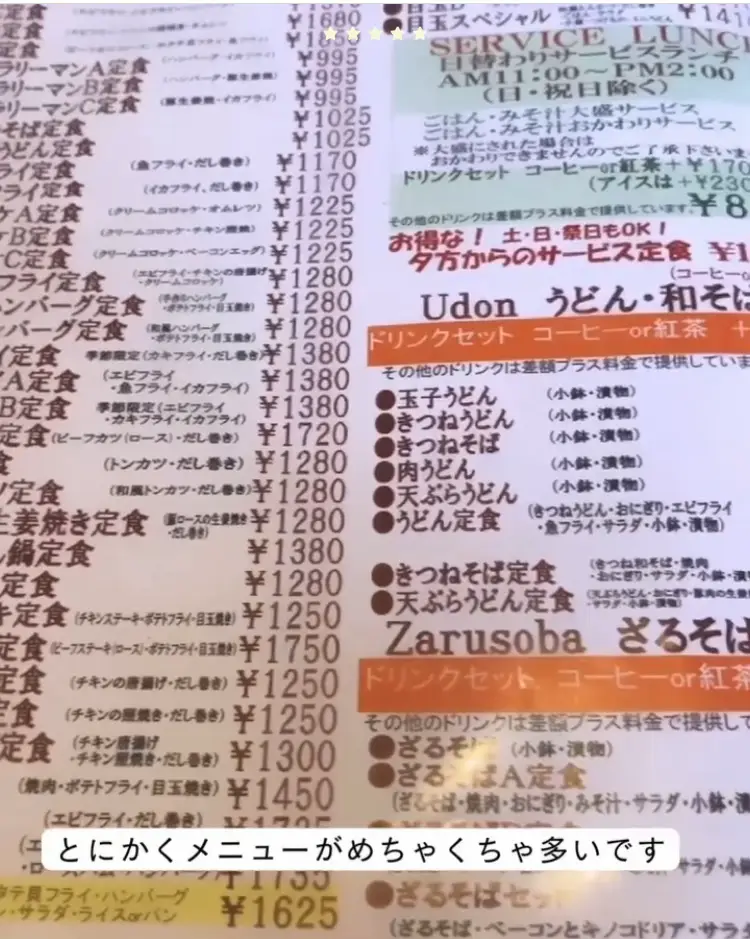 ¥1680
(ハンバーグ・イカフライ)
¥995
ラリーマンA定食
(ハンバーグ・豚生姜焼)
¥995
ラリーマンB定食
(豚生姜焼・イカフライ)
¥995
ラリーマンC定食
そば定食 ¥1025
うどん定食 ¥1025
ライ定食 (魚フライ・だし巻き) ¥1170
フライ定食 (イカフライ、だし巻き) ¥1170
ケA定食 (クリームコロッケ・オムレツ) ¥1225
ケB定食 (クリームコロッケ・チキン照焼) ¥1225
ケC定食 (クリームコロッケ・ベーコンエッグ) ¥1225
フライ定食 (エビフライ・チキンの唐揚げ
・クリームコロッケ) ¥1280
ハンバーグ定食 (手作りハンバーグ
・ポテトフライ・目玉焼き) ¥1280
ンバーグ定食 (和風ハンバーグ
・ポテトフライ・目玉焼き) ¥1280
イ定食 季節限定(カキフライ・だし巻き) ¥1380
A定食 (エビフライ
・魚フライ・イカフライ) ¥1380
B定食 季節限定(エビフライ
・カキフライ・イカフライ) ¥1380
定食(ビーフカツ(ロース)・だし巻き) ¥1720
食 (トンカツ・だし巻き) ¥1280
ツ定食 (和風トンカツ・だし巻き) ¥1280
生姜焼き定食 (豚ロースの生姜焼き
・だし巻き) ¥1280
鍋定食 ¥1380
定食 ¥1280
キ定食 (チキンステーキ・ポテトフライ・目玉焼き) ¥1250
定食 (ビーフステーキ(ロース)・ポテトフライ・目玉焼き) ¥1750
定食 (チキンの唐揚げ・だし巻き) ¥1250
定食 (チキンの照焼き・だし巻き) ¥1250
定食 (チキン唐揚げ
・チキン照焼き・だし巻き) ¥1300
(焼肉・ポテトフライ・目玉焼き) ¥1450
(エビフライ・だし巻き)
¥1735
フライ・ハンバーグ
ン・サラダ・ライスorパン ¥1625
●目玉スペシャル
SERVICE LUNCH
日替わりサービスランチ
AM11:00～PM2:00
(日・祝日除く)
ごはん・みそ汁大盛サービス
ごはん・みそ汁おかわりサービス
※大盛にされた場合は
おかわりできませんのでご了承下さいま
ドリンクセット コーヒーor紅茶 +¥170
(アイスは +¥230
その他のドリンクは差額プラス料金で提供しています。 ¥8
お得な! 土・日・祭日もOK!
夕方からのサービス定食 ¥1
(コーヒーo
Udon うどん・和そば
ドリンクセット コーヒーor紅茶 +
その他のドリンクは差額プラス料金で提供していま
●玉子うどん (小鉢・漬物)
●きつねうどん (小鉢・漬物)
●きつねそば (小鉢・漬物)
●肉うどん (小鉢・漬物)
●天ぷらうどん (小鉢・漬物)
●うどん定食 (きつねうどん・おにぎり・エビフライ
・魚フライ・サラダ・小鉢・漬物)
●きつねそば定食 (きつね和そば・焼肉
・おにぎり・サラダ・小鉢・漬
●天ぷらうどん定食 (天ぷらうどん・おにぎり・豚肉の生姜
・サラダ・小鉢・漬物)
Zarusoba ざるそば
ドリンクセット コーヒーor紅茶
その他のドリンクは差額プラス料金で提供して
●ざるそば (小鉢・漬物)
●ざるそばA定食
(ざるそば・焼肉・おにぎり・みそ汁・サラダ・小鉢・漬
とにかくメニューがめちゃくちゃ多いです
●ざるそばセッ
(ざるそば・ベーコンとキノコドリア・サラ